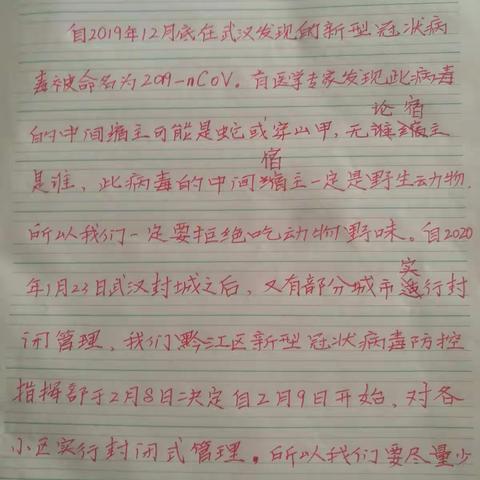 自2019年12月底在武汉发现的新型冠状病
毒被命名为2019-nCoV。有医学专家发现此病毒
论 宿
的中间缩主可能是蛇或穿山甲,无谁缩主
宿
是谁,此病毒的中间缩主一定是野生动物.
所以我们一定要拒绝吃动物野味。自2020
实
年1月23日武汉封城之后,又有部分城市行封
闭管理,我们黔江区新型冠状病毒防控
指挥部于2月8日决定自2月9日开始,对各
小区实行封闭式管理。所以我们要尽量少